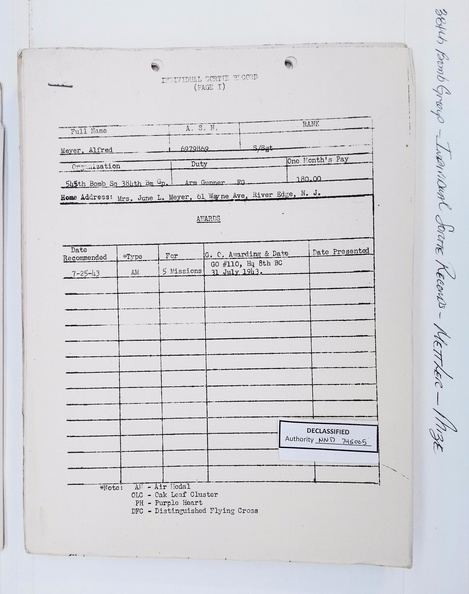 INDIVIDUAL SORTIE RECORD
(PAGE I)
Full Name A. S. N. RANK
Meyer, Alfred 6979869 S/Sgt
Organization Duty One Month's Pay
545th Bomb Sq 384th Bm Gp. Arm Gunner FO 180.00
Home Address: Mrs. June L. Meyer, 61 Wayne Ave, River Edge, N. J.
AWARDS
Date Recommended *Type For G. C. Awarding & Date Date Presented
7-25-43 AM 5 Missions GO #110, Hq 8th BC 31 July 1943.
DECLASSIFIED
Authority NND 745005
*Note: AM - Air Medal
OLC - Oak Leaf Cluster
PH - Purple Heart
DFC - Distinguished Flying Cross
384th Bomb Group - Individual Sortie Record - Mettler - Mize